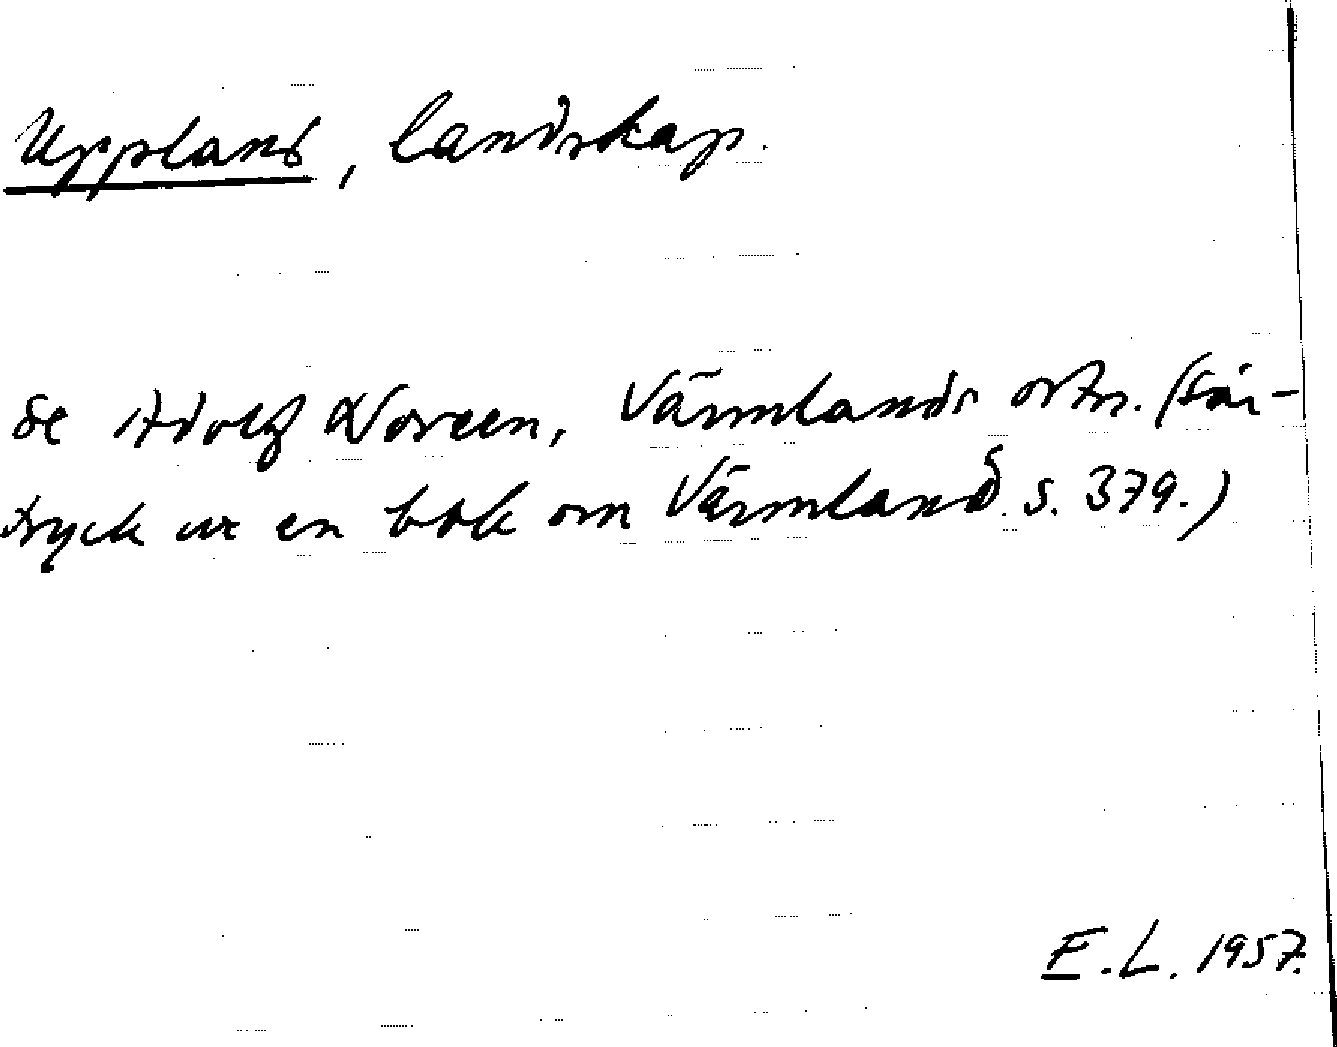 Uppland, landskap.
Se Adolf Noreen, Värmlands ortn. (Sär-
tryck ur en bok om Värmland s. 379.)
E.L. 1957.